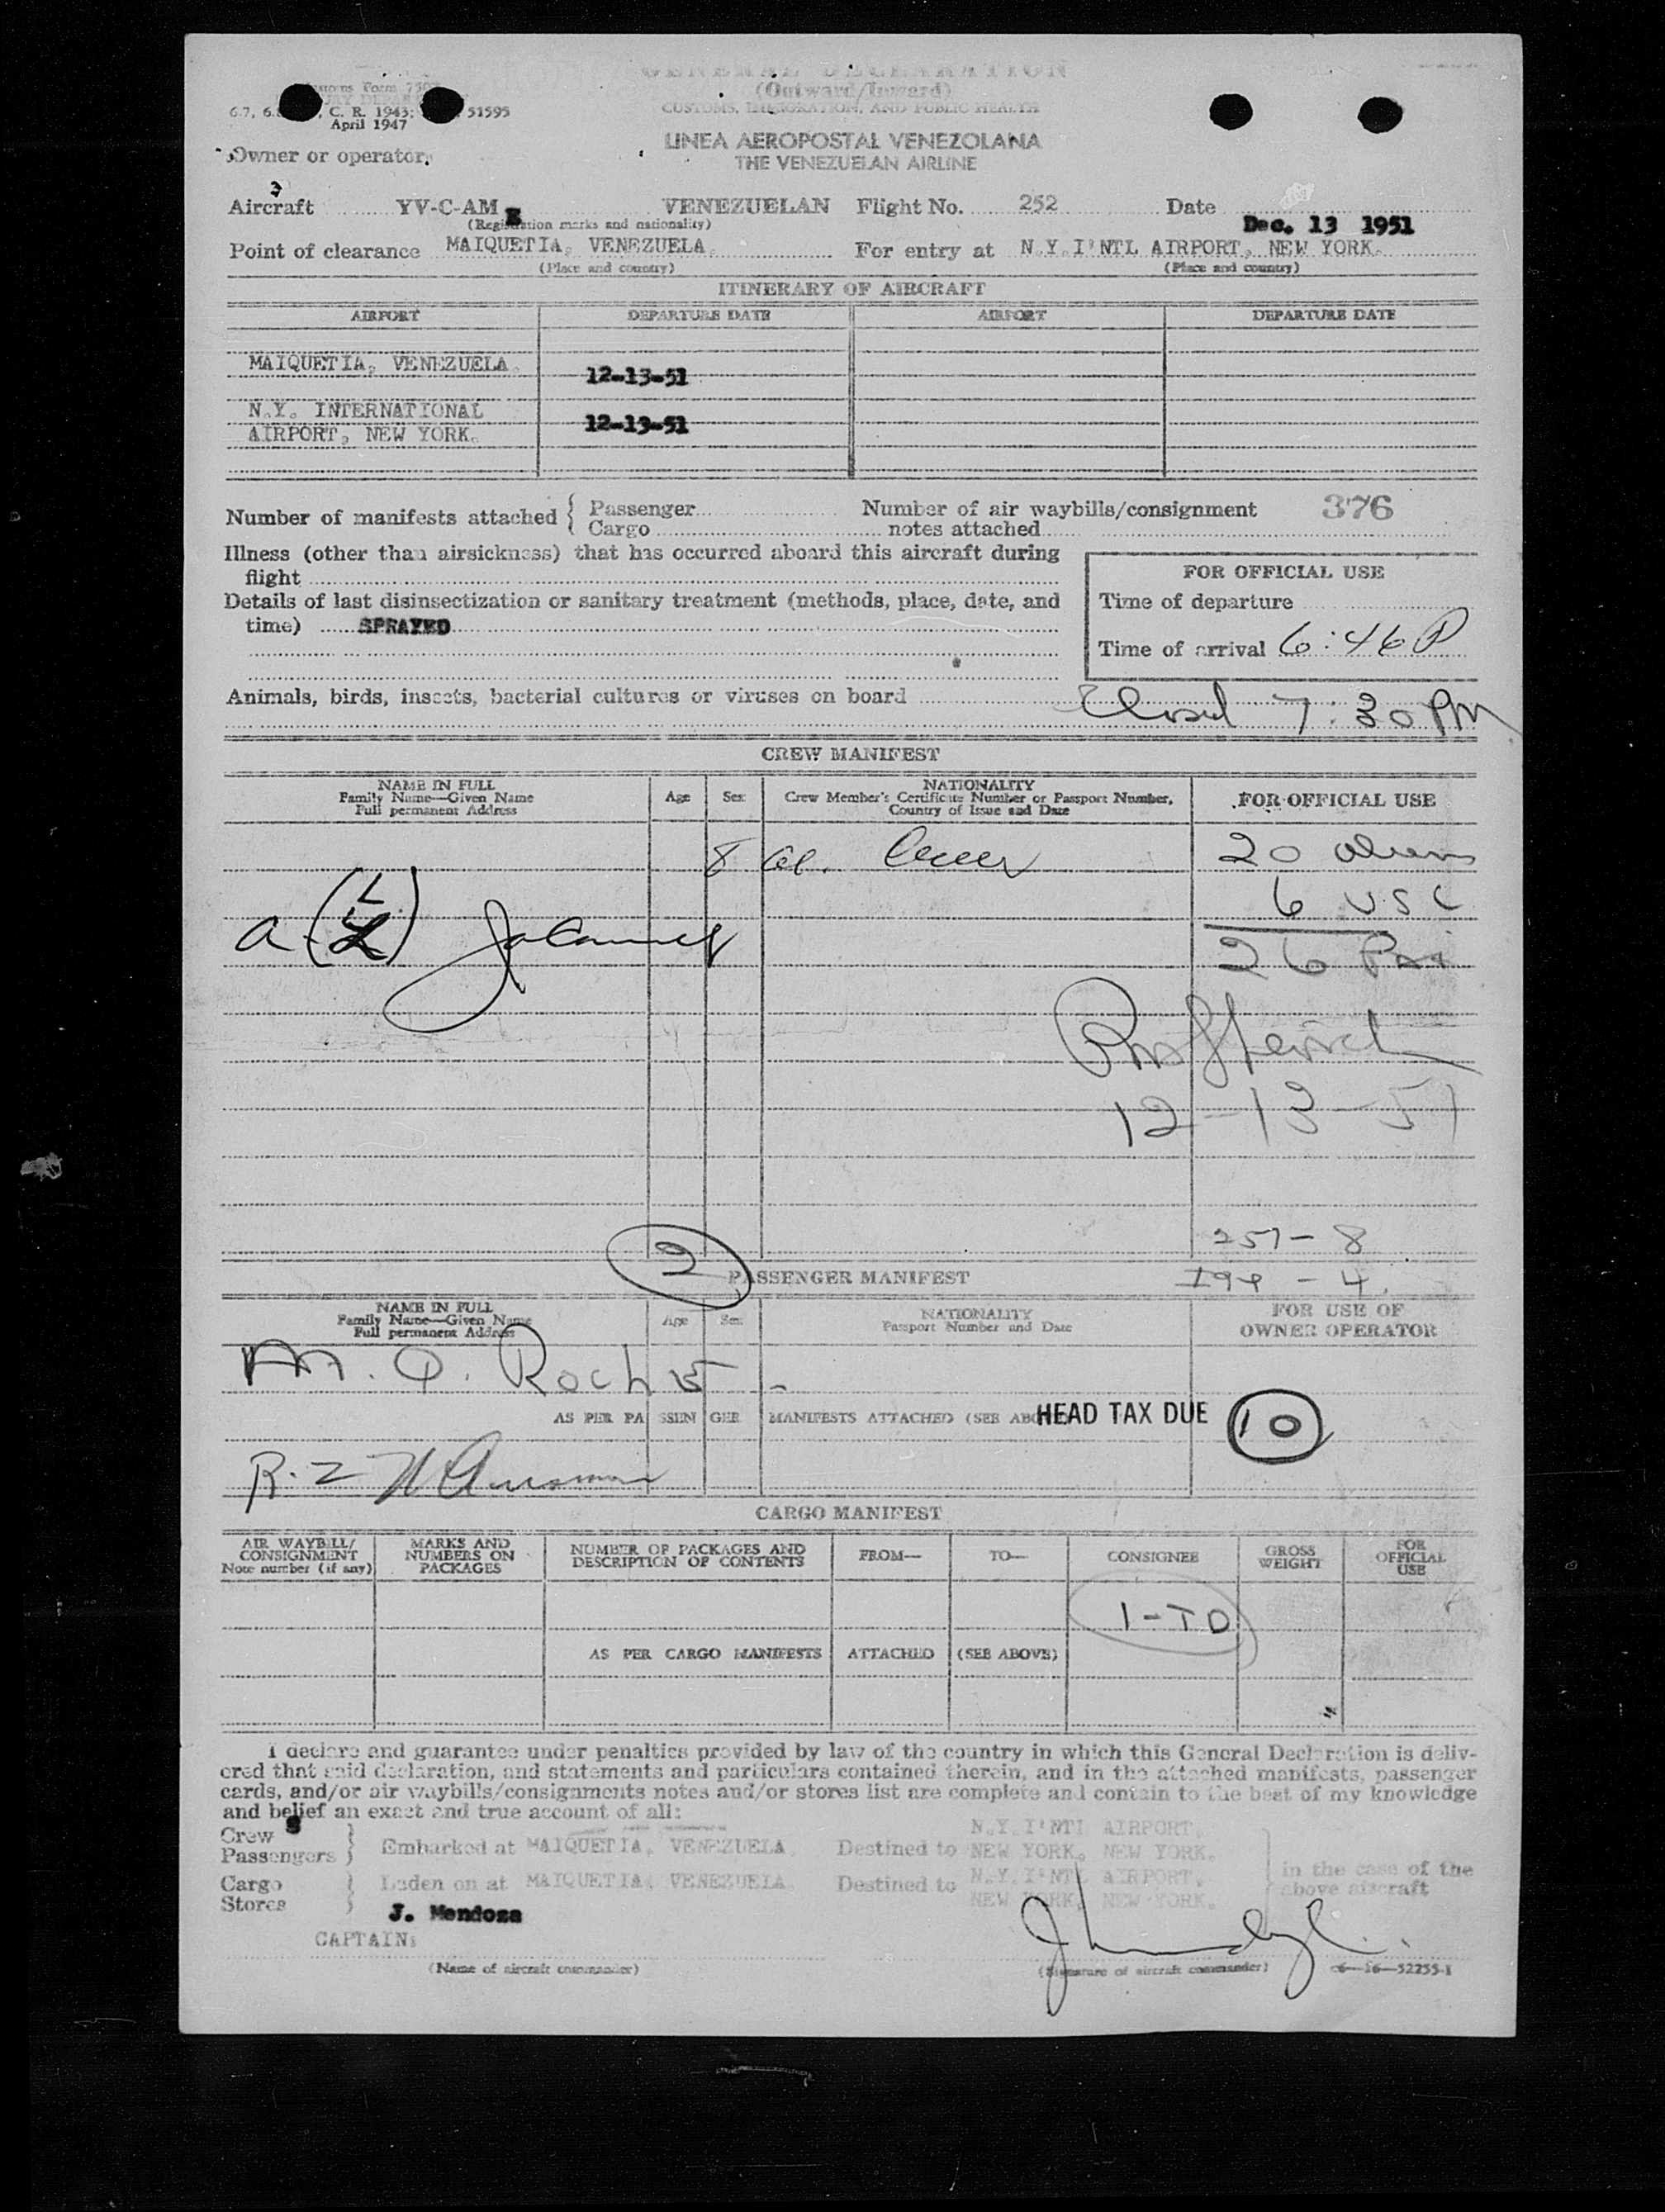 GENERAL DECLARATION
(Outward/Inward)
CUSTOMS, IMMIGRATION, AND PUBLIC HEALTH
Customs Form 750
C. R. 1943; 51595
April 1947
LINEA AEROPOSTAL VENEZOLANA
THE VENEZUELAN AIRLINE
Owner or operator
Aircraft YV-C-AM VENEZUELAN Flight No. 252 Date Dec. 13 1951
(Registration marks and nationality)
Point of clearance MAIQUETIA, VENEZUELA. For entry at N.Y.I'NTL AIRPORT, NEW YORK.
(Place and country) (Place and country)
ITINERARY OF AIRCRAFT
AIRPORT DEPARTURE DATE AIRPORT DEPARTURE DATE
MAIQUETIA, VENEZUELA. 12-13-51
N.Y. INTERNATIONAL
AIRPORT, NEW YORK. 12-13-51
Number of manifests attached { Passenger Number of air waybills/consignment 376
Cargo notes attached
Illness (other than airsickness) that has occurred aboard this aircraft during
flight
FOR OFFICIAL USE
Details of last disinsectization or sanitary treatment (methods, place, date, and
time) SPRAYED
Time of departure
Time of arrival 6:46 P
Animals, birds, insects, bacterial cultures or viruses on board
Closed 7:30 PM
CREW MANIFEST
NAME IN FULL
Family Name—Given Name
Full permanent Address
Age Sex
NATIONALITY
Crew Member's Certificate Number or Passport Number,
Country of Issue and Date
FOR OFFICIAL USE
8 al. Crew
20 aliens
6 USC
26 Pax
12-13-51
257-8
- 4
2
PASSENGER MANIFEST
NAME IN FULL
Family Name—Given Name
Full permanent Address
Age Sex
NATIONALITY
Passport Number and Date
FOR USE OF
OWNER OPERATOR
M. Q. Roch
AS PER PASSENGER MANIFESTS ATTACHED (SEE ABO
HEAD TAX DUE 10
CARGO MANIFEST
AIR WAYBILL/
CONSIGNMENT
Note number (if any)
MARKS AND
NUMBERS ON
PACKAGES
NUMBER OF PACKAGES AND
DESCRIPTION OF CONTENTS
FROM— TO— CONSIGNEE
GROSS
WEIGHT
FOR
OFFICIAL
USE
1-TD
AS PER CARGO MANIFESTS ATTACHED (SEE ABOVE)
I declare and guarantee under penalties provided by law of the country in which this General Declaration is deliv-
ered that said declaration, and statements and particulars contained therein, and in the attached manifests, passenger
cards, and/or air waybills/consignments notes and/or stores list are complete and contain to the best of my knowledge
and belief an exact and true account of all:
Crew 8
Passengers } Embarked at MAIQUETIA, VENEZUELA Destined to N.Y.I'NTL AIRPORT, NEW YORK, NEW YORK.
Cargo
Stores } Laden on at MAIQUETIA, VENEZUELA Destined to N.Y.I'NTL AIRPORT, NEW YORK, NEW YORK.
in the case of the
above aircraft
J. Mendoza
CAPTAIN:
(Name of aircraft commander)
(Signature of aircraft commander) 16—52255-1